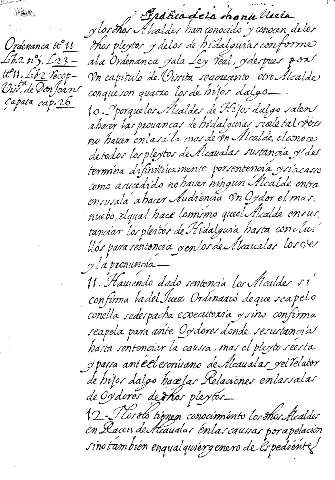 Práctica de la chancilleria
y los dhos Alcaldes han conocido y conocen de los
dhos pleytos y de los de hidalguia conforme
a la Ordenanza y a la Ley Real, y despues por
Un capitulo de Visita se acrecento otro Alcalde
con que son quatro los de hijos dalgo.
Ordenanza tt.º 11
Lib. 2 n.º 9. L. 23
tt.º 11. Lib. 2 recop.
Vis.ta de Don Joan
capata cap. 26
10. I porque los Alcaldes de Hijos dalgo salen
a hacer las provanzas de hidalguias suele tal vez
no haver en la sala mas de Un Alcalde, el conoce
de todos los pleytos de Alcavalas sustancia y de
termina difinitivamente por sentencia y si acaso
como a sucedido no haver ningun Alcalde entra
en su sala a hacer Audiencia Un Oydor el mas
nuebo, el qual hace lo mismo que el Alcalde en sus
tanciar los pleitos de Hidalguia hasta conclu
llos para sentencia y en los de Alcavalas los vee
y la pronuncia
11. Haviendo dado sentencia los Alcaldes si
confirma la del Juez Ordinario de que se apelo
con ella se despacha executoria y si no confirma
se apela para ante Oydores donde se sustancia
hasta sentenciar la caussa, mas el pleyto se esta
y passa ante el escrivano de Alcavalas y el Relator
de hijos dalgo hace las Relaciones en las salas
de Oydores de dhos pleytos.
12. No solo tienen conocimiento los dhos Alcaldes
en Racon de Alcavalas en las caussas por apelacion
sino tambien en qualquier genero de Expediente